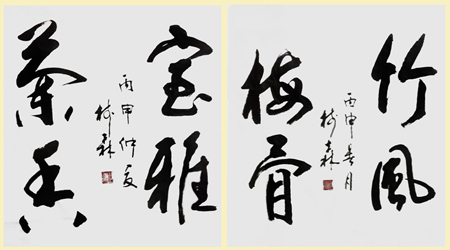 室雅
蘭香
丙申仲夏
树森
竹風
梅骨
丙申春月
树森